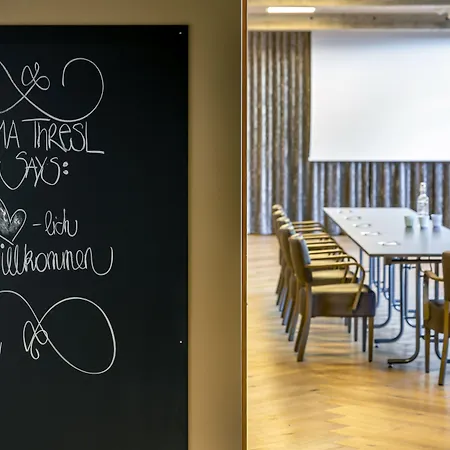 MA THRESL
SAYS:
-lich
illkommen